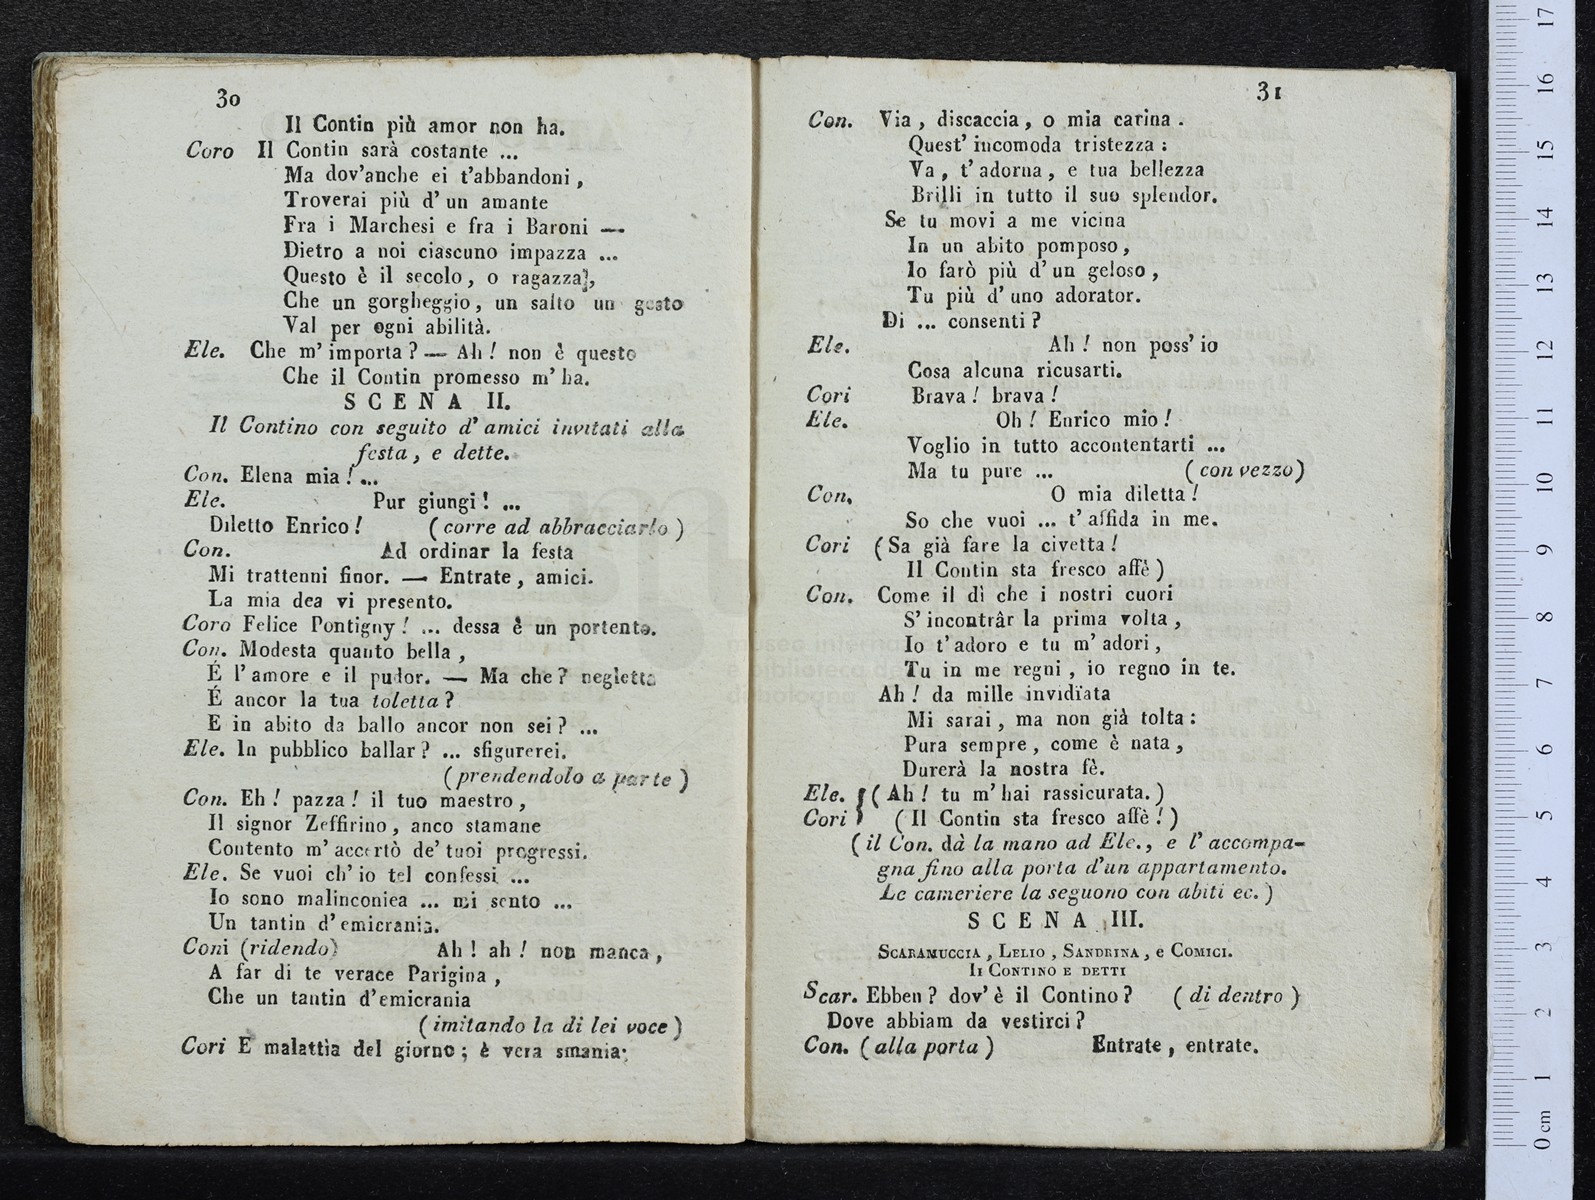 30
Il Contin più amor non ha.
Coro Il Contin sarà costante ...
Ma dov'anche ei t'abbandoni,
Troverai più d'un amante
Fra i Marchesi e fra i Baroni —
Dietro a noi ciascuno impazza ...
Questo è il secolo, o ragazza,
Che un gorgheggio, un salto un gesto
Val per ogni abilità.
Ele. Che m'importa? — Ah! non è questo
Che il Contin promesso m'ha.
SCENA II.
Il Contino con seguito d'amici invitati alla
festa, e dette.
Con. Elena mia! ...
Ele. Pur giungi! ...
Diletto Enrico! (corre ad abbracciarlo)
Con. Ad ordinar la festa
Mi trattenni finor. — Entrate, amici.
La mia dea vi presento.
Coro Felice Pontigny! ... dessa è un portento.
Con. Modesta quanto bella,
É l'amore e il pudor. — Ma che? negletta
É ancor la tua toletta?
E in abito da ballo ancor non sei? ...
Ele. In pubblico ballar? ... sfigurerei.
(prendendolo a parte)
Con. Eh! pazza! il tuo maestro,
Il signor Zeffirino, anco stamane
Contento m'accertò de' tuoi progressi.
Ele. Se vuoi ch'io tel confessi ...
Io sono malinconica ... mi sento ...
Un tantin d'emicrania.
Coni (ridendo) Ah! ah! non manca,
A far di te verace Parigina,
Che un tantin d'emicrania
(imitando la di lei voce)
Cori E malattìa del giorno; è vera smania;
31
Con. Via, discaccia, o mia carina.
Quest'incomoda tristezza:
Va, t'adorna, e tua bellezza
Brilli in tutto il suo splendor.
Se tu movi a me vicina
In un abito pomposo,
Io farò più d'un geloso,
Tu più d'uno adorator.
Di ... consenti?
Ele. Ah! non poss'io
Cosa alcuna ricusarti.
Cori Brava! brava!
Ele. Oh! Enrico mio!
Voglio in tutto accontentarti ...
Ma tu pure ... (con vezzo)
Con. O mia diletta!
So che vuoi ... t'affida in me.
Cori (Sa già fare la civetta!
Il Contin sta fresco affè)
Con. Come il dì che i nostri cuori
S'incontrâr la prima volta,
Io t'adoro e tu m'adori,
Tu in me regni, io regno in te.
Ah! da mille invidïata
Mi sarai, ma non già tolta:
Pura sempre, come è nata,
Durerà la nostra fè.
Ele. (Ah! tu m'hai rassicurata.)
Cori (Il Contin sta fresco affè!)
(il Con. dà la mano ad Ele., e l'accompa-
gna fino alla porta d'un appartamento.
Le cameriere la seguono con abiti ec.)
SCENA III.
SCARAMUCCIA, LELIO, SANDRINA, e COMICI.
Il CONTINO E DETTI
Scar. Ebben? dov'è il Contino? (di dentro)
Dove abbiam da vestirci?
Con. (alla porta) Entrate, entrate.